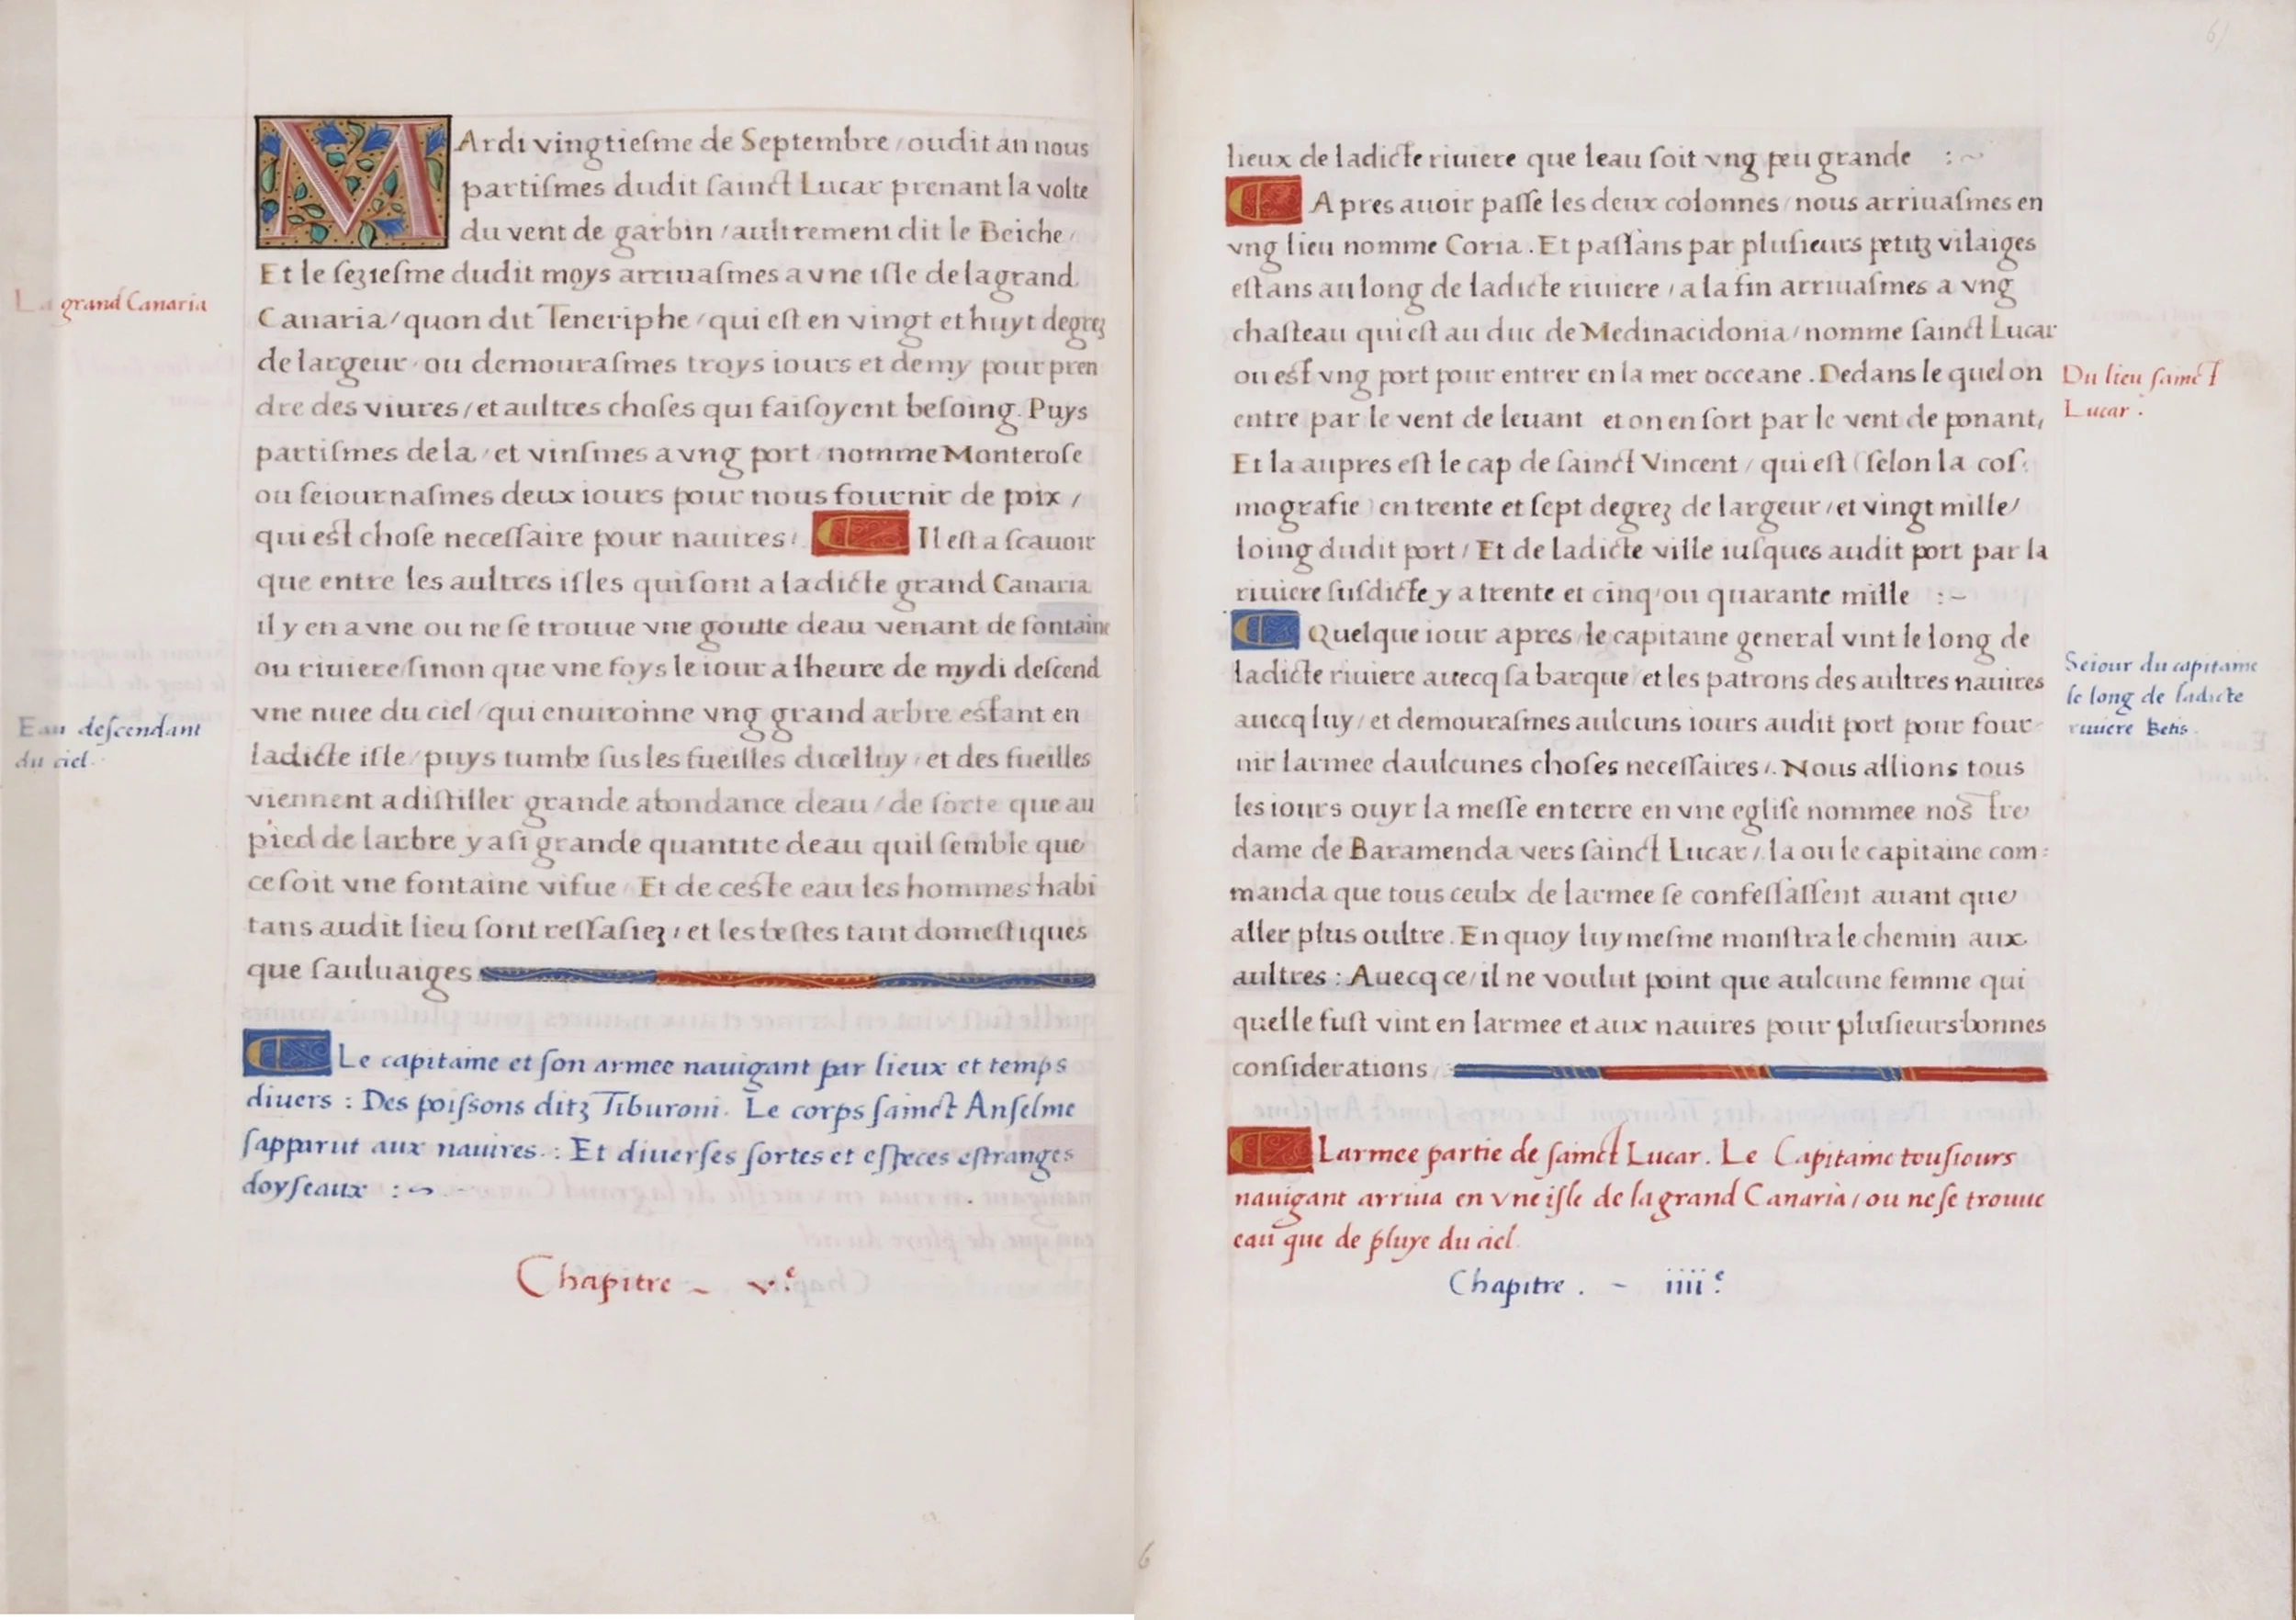 La grand Canaria
Eau descendant
du ciel.
MArdi vingtiesme de Septembre / oudit an nous
partismes dudit sainct Lucar prenant la volte
du vent de garbin / aultrement dit le Beiche /
Et le seziesme dudit moys arriuasmes a vne isle de la grand
Canaria / quon dit Teneriphe / qui est en vingt et huyt degrez
de largeur / ou demourasmes troys iours et demy pour pren
dre des viures / et aultres choses qui faisoyent besoing. Puys
partismes de la / et vinsmes a vng port nomme Monterose
ou seiournasmes deux iours pour nous fournir de poix /
qui est chose necessaire pour nauires / Il est a scauoir
que entre les aultres isles qui sont a ladicte grand Canaria
il y en a vne ou ne se trouue vne goutte deau venant de fontaine
ou riuiere / sinon que vne foys le iour a lheure de mydi descend
vne nuee du ciel / qui enuironne vng grand arbre estant en
ladicte isle / puys tumbe sus les fueilles dicelluy / et des fueilles
viennent a distiller grande abondance deau / de sorte que au
pied de larbre y a si grande quantite deau quil semble que
ce soit vne fontaine vifue / Et de ceste eau les hommes habi
tans audit lieu sont ressasiez / et les bestes tant domestiques
que sauluaiges
Le capitaine et son armee nauigant par lieux et temps
diuers : Des poissons ditz Tiburoni. Le corps sainct Anselme
sapparut aux nauires. : Et diuerses sortes et especes estranges
doyseaux :~
Chapitre ~ v.e
lieux de ladicte riuiere que leau soit vng peu grande :~
Apres auoir passe les deux colonnes / nous arriuasmes en
vng lieu nomme Coria. Et passans par plusieurs petitz vilaiges
estans au long de ladicte riuiere / a la fin arriuasmes a vng
chasteau qui est au duc de Medinacidonia / nomme sainct Lucar
ou est vng port pour entrer en la mer occeane. Dedans le quel on
entre par le vent de leuant et on en sort par le vent de ponant,
Et la aupres est le cap de sainct Vincent / qui est (selon la cos:
mografie) en trente et sept degrez de largeur / et vingt mille /
loing dudit port / Et de ladicte ville iusques audit port par la
riuiere susdicte y a trente et cinq ou quarante mille :~
Quelque iour apres le capitaine general vint le long de
ladicte riuiere auecq sa barque / et les patrons des aultres nauires
auecq luy / et demourasmes aulcuns iours audit port pour four
nir larmee daulcunes choses necessaires /. Nous allions tous
les iours ouyr la messe en terre en vne eglise nommee nos tre
dame de Baramenda vers sainct Lucar / la ou le capitaine com:
manda que tous ceulx de larmee se confessassent auant que
aller plus oultre. En quoy luy mesme monstra le chemin aux
aultres : Auecq ce / il ne voulut point que aulcune femme qui
quelle fust vint en larmee et aux nauires pour plusieurs bonnes
considerations
Larmee partie de sainct Lucar. Le Capitaine tousiours
nauigant arriua en vne isle de la grand Canaria / ou ne se trouue
eau que de pluye du ciel.
Chapitre . ~ iiii e.
Du lieu sainct
Lucar .
Seiour du capitaine
le long de ladicte
riuiere Betis.